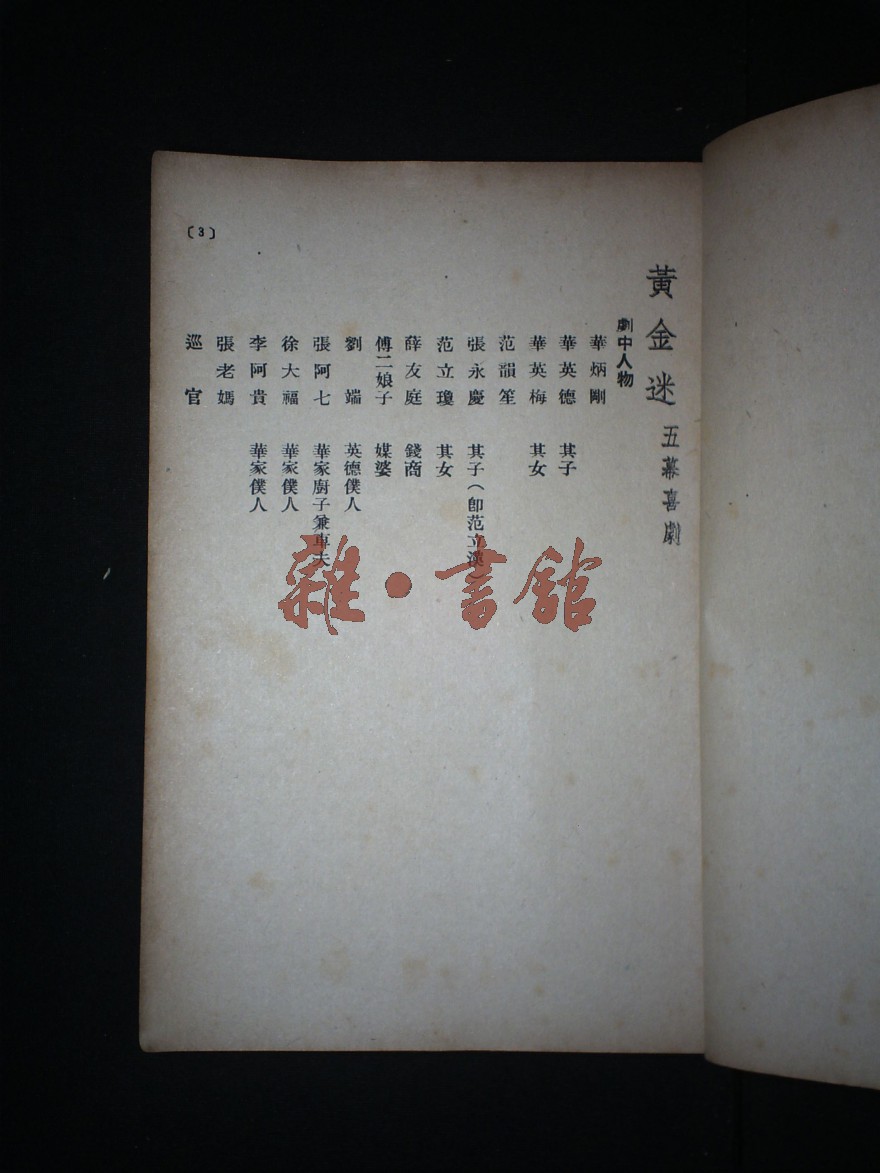 黃金迷 五幕喜劇
劇中人物
華炳剛
華英德 其子
華英梅 其女
范韻笙
張永慶 其子(卽范立漢
范立瓊 其女
薛友庭 錢商
傅二娘子 媒婆
劉端 英德僕人
張阿七 華家廚子兼車夫
徐大福 華家僕人
李阿貴 華家僕人
張老媽
巡官
〔3〕
雜·書館